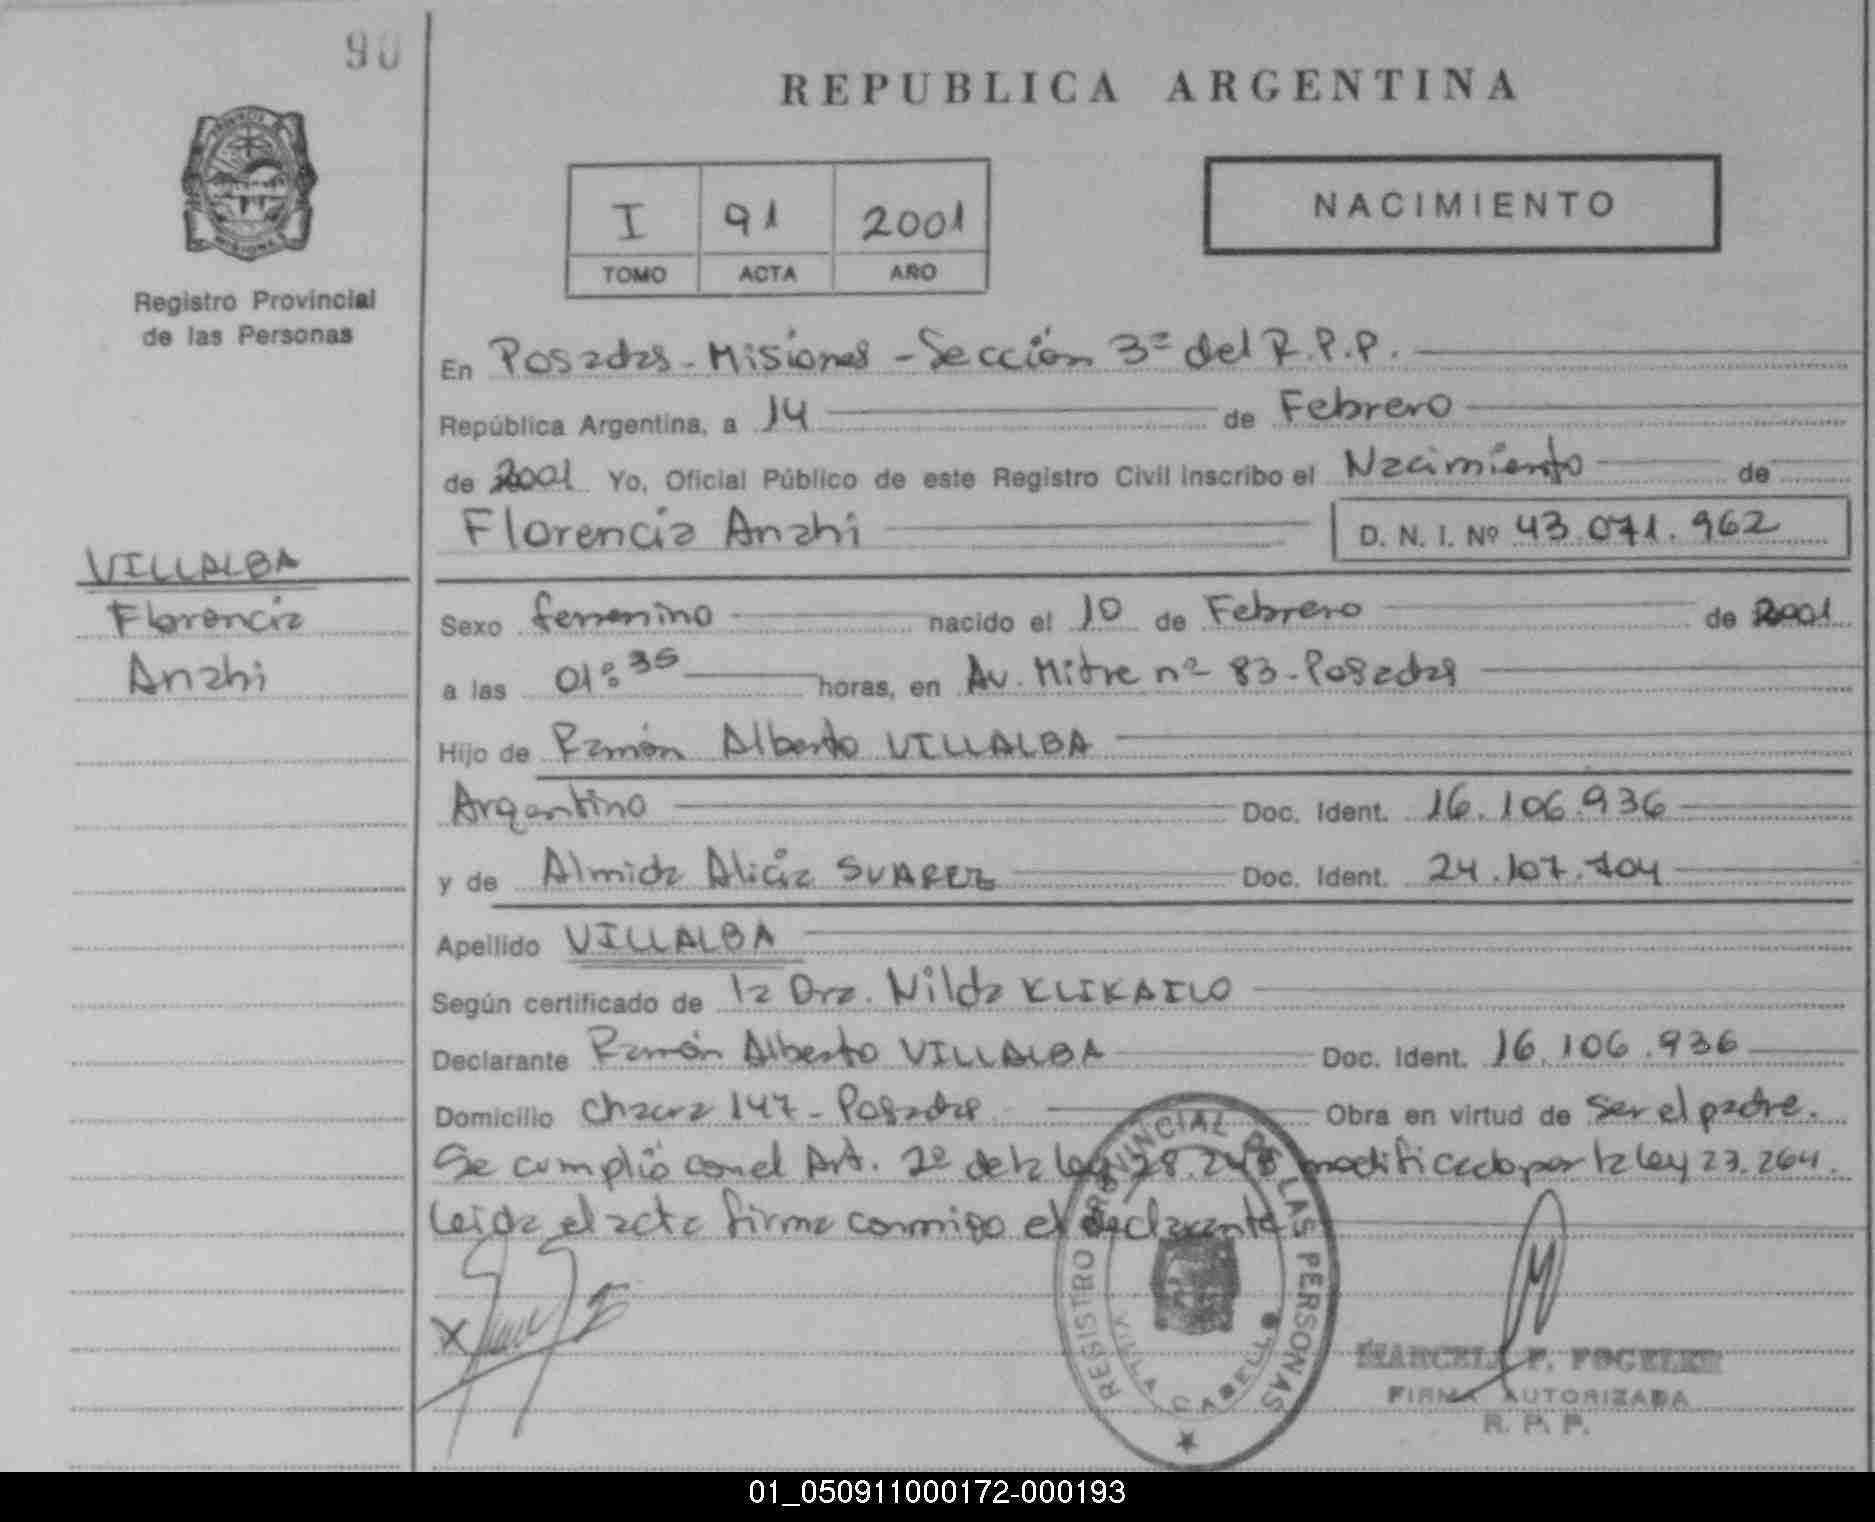 90
REPUBLICA ARGENTINA
I 91 2001
TOMO ACTA AÑO
NACIMIENTO
Registro Provincial
de las Personas
En Posadas - Misiones - Sección 3ª del R.P.P.
República Argentina, a 14 de Febrero
de 2001 Yo, Oficial Público de este Registro Civil inscribo el Nacimiento de
Florencia Anahi D. N. I. Nº 43.071.962
VILLALBA
Florencia
Anahi
Sexo femenino nacido el 10 de Febrero de 2001
a las 01:35 horas, en Av. Mitre nº 83 - Posadas
Hijo de Ramón Alberto VILLALBA
Argentino Doc. Ident. 16.106.936
y de Almida Alicia SUAREZ Doc. Ident. 24.107.704
Apellido VILLALBA
Según certificado de la Dra. Nilda KLIKAILO
Declarante Ramón Alberto VILLALBA Doc. Ident. 16.106.936
Domicilio Chacra 147 - Posadas Obra en virtud de ser el padre.
Se cumplió con el Art. 2º de la ley modificado por la ley 23.264.
Leida el acta firma conmigo el declarante
X
REGISTRO PROVINCIAL DE LAS PERSONAS
VILLA CABELLO
MARCELA F. FOGELER
FIRMA AUTORIZADA
R. P. P.
01_050911000172-000193